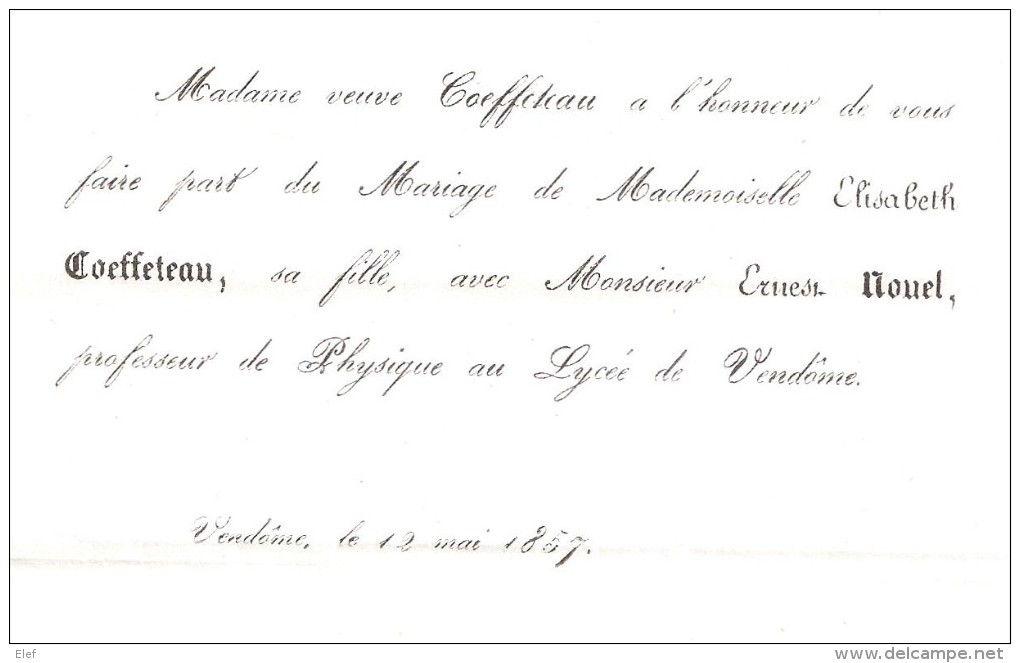 Madame veuve Coeffeteau a l'honneur de vous
faire part du Mariage de Mademoiselle Elisabeth
Coeffeteau, sa fille, avec Monsieur Ernest Nouel,
professeur de Physique au Lycée de Vendôme.
Vendôme, le 12 mai 1857.
Elef
delcampe.net